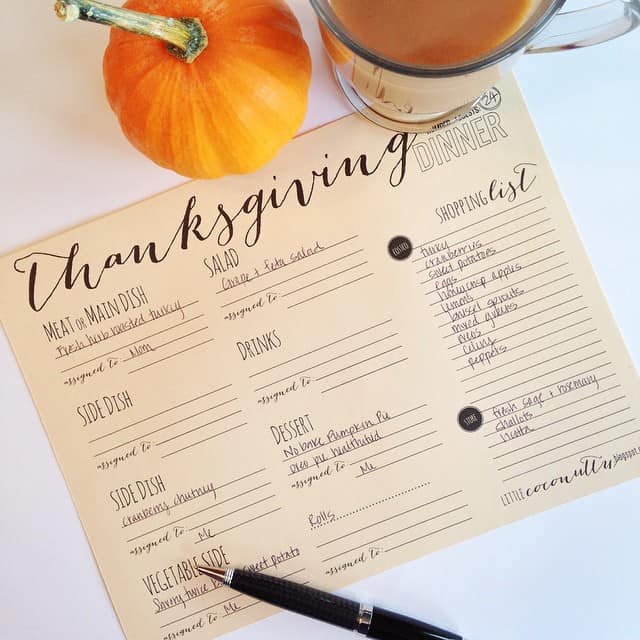 Thanksgiving
DINNER
24
MEAT OR MAIN DISH
Fresh herb roasted turkey
assigned to: Mom
SIDE DISH
assigned to:
SIDE DISH
Cranberry chutney
assigned to: Me
VEGETABLE SIDE
Savory twice sweet potato
assigned to: Me
SALAD
Grape + feta salad
assigned to:
DRINKS
assigned to:
DESSERT
No bake Pumpkin Pie
oreo pie
assigned to: Me
Rolls
assigned to:
SHOPPING list
turkey
cranberries
sweet potatoes
eggs
honeycrisp apples
lemons
brussel sprouts
mixed greens
oreos
celery
peppers
STORE
fresh sage + rosemary
shallots
LITTLE coconutty.blogspot.